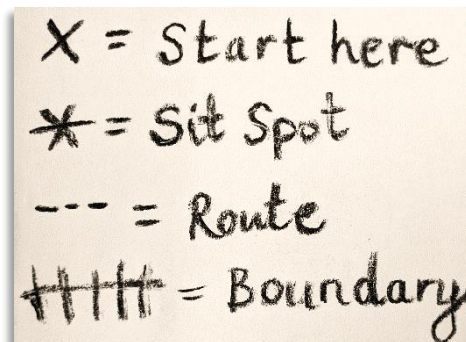 X = Start here
* = Sit Spot
--- = Route
= Boundary